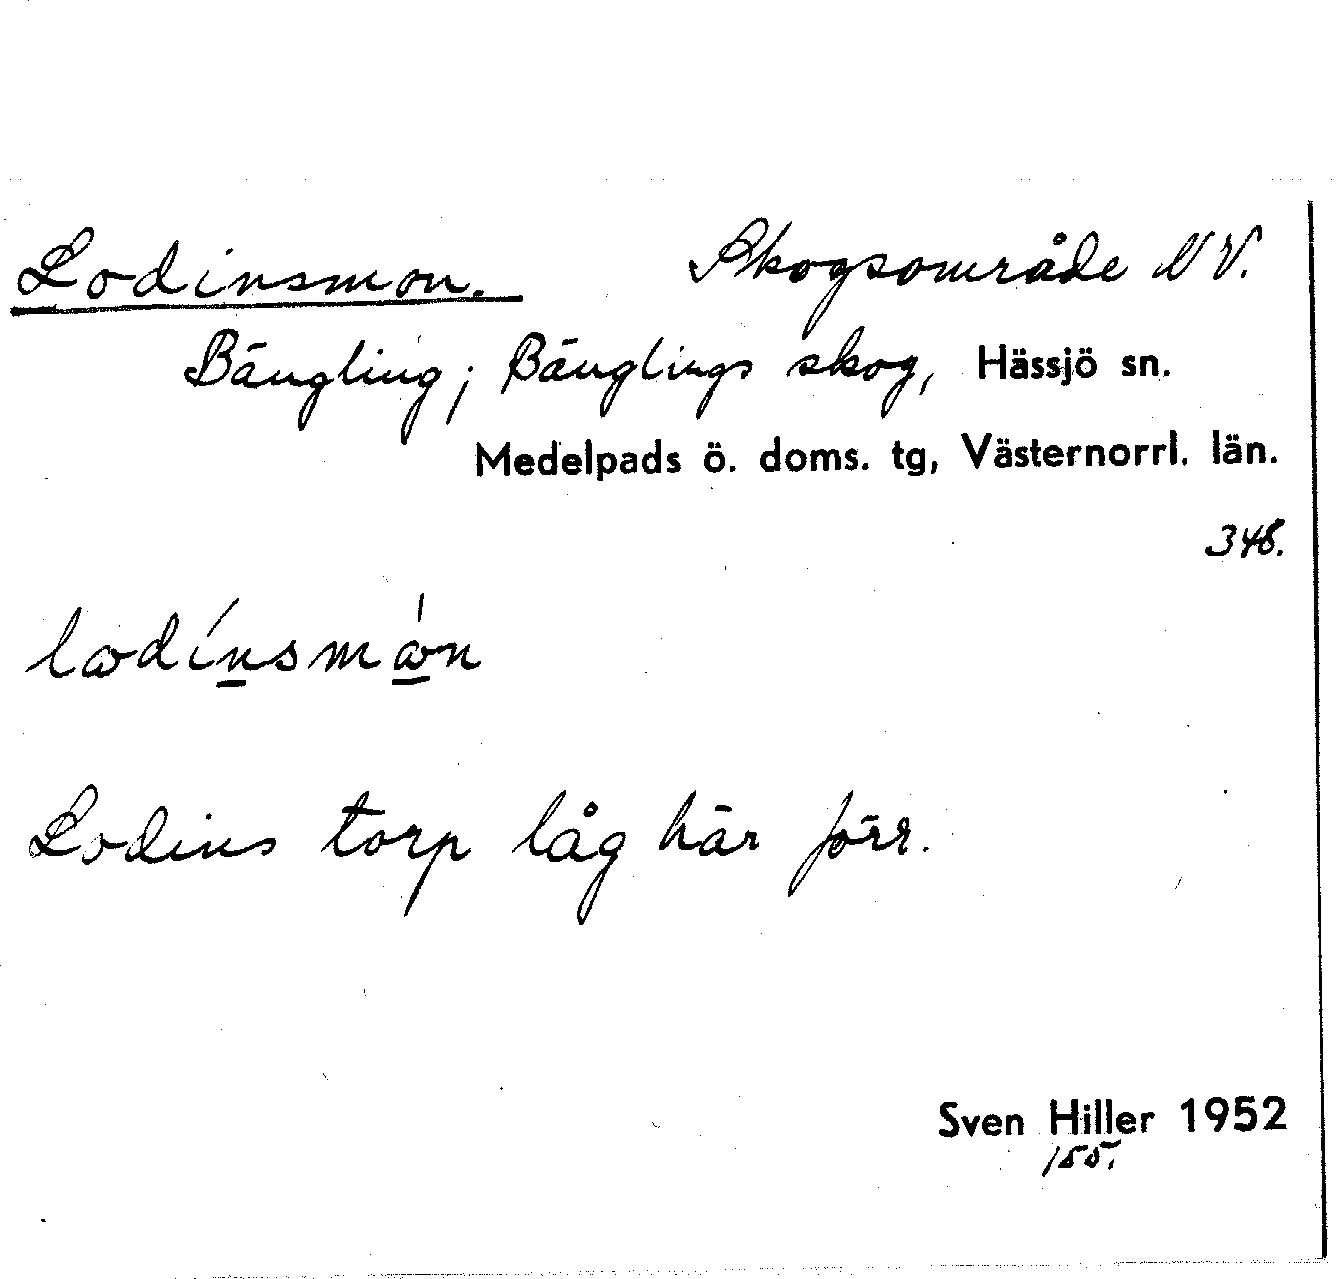 Lodinsmon. Skogsområde NV.
Bängling; Bänglings skog, Hässjö sn.
Medelpads ö. doms. tg, Västernorrl. län.
348.
lodínsmón
Lodins torp låg här förr.
Sven Hiller 1952
155.